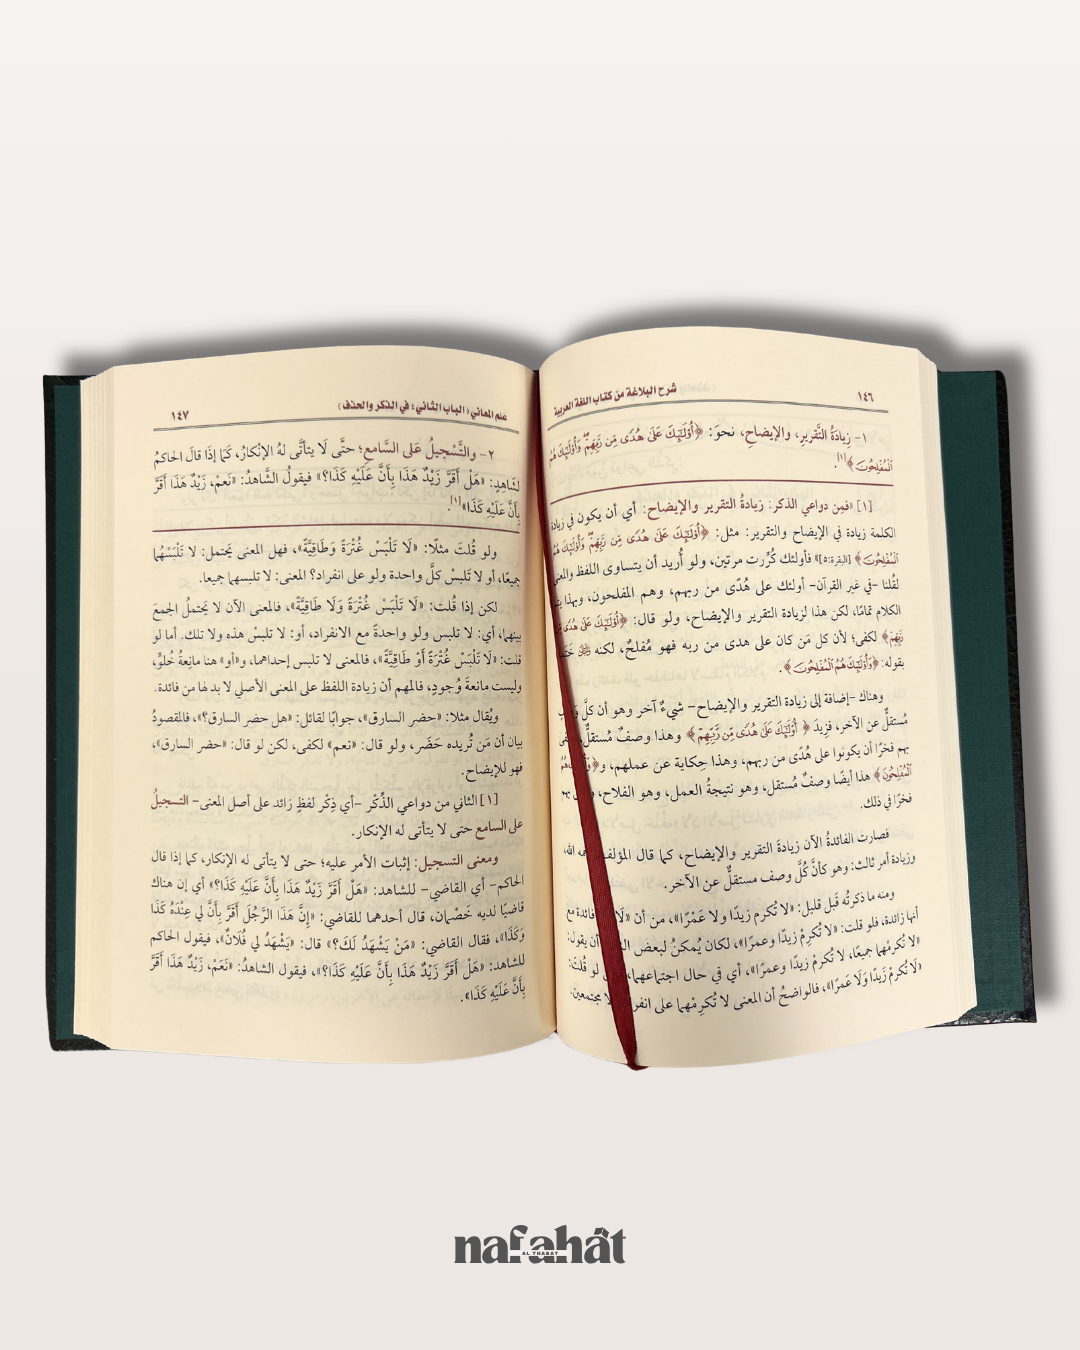 ١٤٦
شرح البلاغة من كتاب اللغة العربية
١- زِيَادَةُ التَّقرِيرِ، والإِيضاحِ، نحوَ: ﴿أُوْلَٰٓئِكَ عَلَىٰ هُدٗى مِّن رَّبِّهِمۡۖ وَأُوْلَٰٓئِكَ هُمُ
ٱلۡمُفۡلِحُونَ﴾[١].
[١] «فمِن دواعي الذكر: زيادةُ التقرير والإيضاح: أي أن يكون في زيادة
الكلمة زيادة في الإيضاح والتقرير: مثل: ﴿أُوْلَٰٓئِكَ عَلَىٰ هُدٗى مِّن رَّبِّهِمۡۖ وَأُوْلَٰٓئِكَ هُمُ
ٱلۡمُفۡلِحُونَ﴾ [البقرة:٥]» فأولئك كُرِّرت مرتين، ولو أُريد أن يتساوى اللفظ والمعنى
لقُلنا -في غير القرآن- أولئك على هُدًى من ربهم، وهم المفلحون، وبهذا
الكلام تمامًا، لكن هذا لزيادة التقرير والإيضاح، ولو قال: ﴿أُوْلَٰٓئِكَ عَلَىٰ هُدٗى مِّن
رَّبِّهِمۡ﴾ لكفى؛ لأن كل مَن كان على هدى من ربه فهو مُفلحٌ، لكنه ﷻ
بقوله: ﴿وَأُوْلَٰٓئِكَ هُمُ ٱلۡمُفۡلِحُونَ﴾.
وهناك -إضافة إلى زيادة التقرير والإيضاح- شيءٌ آخر وهو أن كلَّ
مُستقلٌّ عن الآخر، فزِيدَ ﴿أُوْلَٰٓئِكَ عَلَىٰ هُدٗى مِّن رَّبِّهِمۡ﴾ وهذا وصفٌ مُستقلٌّ،
بهم فخرًا أن يكونوا على هُدًى من ربهم، وهذا حِكاية عن عملهم، و﴿ هُمُ
ٱلۡمُفۡلِحُونَ﴾ هذا أيضًا وصفٌ مُستقل، وهو نتيجةُ العمل، وهو الفلاح، بهم
فخرًا في ذلك.
فصارت الفائدةُ الآن زيادةَ التقرير والإيضاح، كما قال المؤلف الله،
وزيادة أمر ثالث: وهو كأنَّ كُلَّ وصف مستقلٌّ عن الآخر.
ومنه ما ذكرتُه قَبل قليل: «لا تُكرم زيدًا ولا عَمْرًا»، من أن «لَا فائدة مع
أنها زائدة، فلو قلت: «لا تُكرِمْ زيدًا وعمرًا»، لكان يُمكنُ لبعض أن يقول:
«لا تُكرِمْهما جميعًا، لا تُكرِمْ زيدًا وعمرًا»، أي في حال اجتماعهما، لو قُلتَ:
«لَا تُكرِمْ زَيدًا وَلَا عَمرًا»، فالواضحُ أن المعنى لا تُكرِمْهما على انفر لا مجتمعين.
علم المعاني (الباب الثاني: في الذكر والحذف)
١٤٧
٢- والتَّسْجيلُ عَلى السَّامعِ؛ حتَّى لَا يتأتَّى لهُ الإنْكارُ، كَمَا إذَا قالَ الحَاكمُ
لشَاهِدٍ: «هَلْ أَقَرَّ زَيْدٌ هَذَا بِأَنَّ عَلَيْهِ كَذَا؟» فيقولُ الشَّاهدُ: «نَعَمْ، زَيْدٌ هَذَا أَقَرَّ
بِأَنَّ عَلَيْهِ كَذَا»[١].
ولو قُلتَ مثلًا: «لَا تَلْبَسْ غُتْرَةً وَطَاقِيَّةً»، فهل المعنى يَحتمل: لا تَلْبَسْهُما
جميعًا، أو لا تَلبسْ كلَّ واحدة ولو على انفراد؟ المعنى: لا تلبسهما جميعا.
لكن إذا قُلت: «لَا تَلْبَسْ غُتْرَةً وَلَا طَاقِيَّةً»، فالمعنى الآن لا يَحتملُ الجمعَ
بينهما، أي: لا تلبس ولو واحدةً مع الانفراد، أو: لا تلبسْ هذه ولا تلك. أما لو
قلت: «لَا تَلْبَسْ غُتْرَةً أَوْ طَاقِيَّةً»، فالمعنى لا تلبس إحداهما، و«أو» هنا مانِعةُ خُلوٍّ،
وليست مانعةَ وُجودٍ، فالمهم أن زيادة اللفظ على المعنى الأصلي لا بد لها من فائدة.
ويُقال مثلا: «حضر السارق»، جوابًا لقائل: «هل حضر السارق؟»، فالمقصودُ
بيان أن مَن تُريده حَضَر، ولو قال: «نعم» لكفى، لكن لو قال: «حضر السارق»،
فهو للإيضاح.
[١] الثاني من دواعي الذِّكْر -أي ذِكْر لفظٍ زائد على أصل المعنى- التسجيلُ
على السامع حتى لا يتأتى له الإنكار.
ومعنى التسجيل: إثبات الأمر عليه؛ حتى لا يتأتى له الإنكار، كما إذا قال
الحاكم- أي القاضي- للشاهد: «هَلْ أَقَرَّ زَيْدٌ هَذَا بِأَنَّ عَلَيْهِ كَذَا؟» أي إن هناك
قاضيًا لديه خَصْمان، قال أحدهما للقاضي: «إِنَّ هَذَا الرَّجُلَ أَقَرَّ بِأَنَّ لِي عِنْدَهُ كَذَا
وَكَذَا»، فقال القاضي: «مَنْ يَشْهَدُ لَكَ؟» قال: «يَشْهَدُ لِي فُلَانٌ»، فيقول الحاكم
للشاهد: «هَلْ أَقَرَّ زَيْدٌ هَذَا بِأَنَّ عَلَيْهِ كَذَا؟»، فيقول الشاهدُ: «نَعَمْ، زَيْدٌ هَذَا أَقَرَّ
بِأَنَّ عَلَيْهِ كَذَا».
nafahāt
AL THABAT